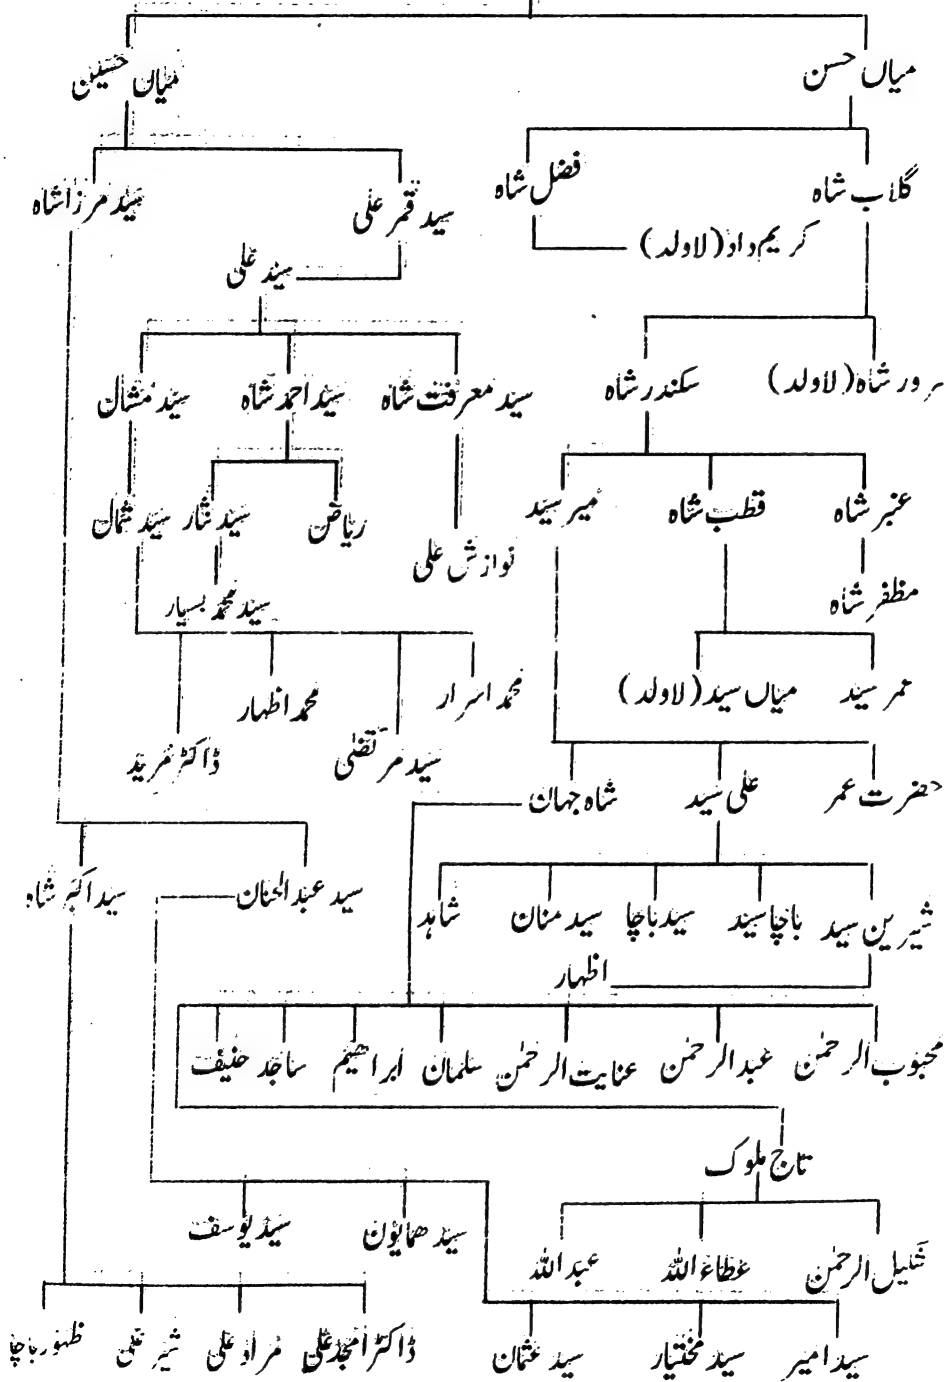 میاں حسن
میاں حسین
گلاب شاہ
فضل شاہ
سید قمر علی
سید مرزا شاہ
کریم داد (لاولد)
سید علی
سرور شاہ (لاولد)
سکندر شاہ
سید معرفت شاہ
سید احمد شاہ
سید مشال
عنبر شاہ
قطب شاہ
میر سید
ریاض
سید نثار
سید شمال
نوازش علی
مظفر شاہ
سید محمد بسیار
عمر سید
میاں سید (لاولد)
محمد اسرار
محمد اظہار
سید مرتضیٰ
ڈاکٹر فرید
حضرت عمر
علی سید
شاہ جہان
سید عبدالحنان
سید اکبر شاہ
شیرین سید
باچا سید
سید باچا
سید منان
شاہد
اظہار
محبوب الرحمٰن
عبدالرحمٰن
عنایت الرحمٰن
سلمان
ابراھیم
ساجد
حنیف
تاج ملوک
سید ھمایون
سید یوسف
خلیل الرحمٰن
عطاء اللہ
عبداللہ
سید امیر
سید مختیار
سید عثمان
ڈاکٹر امجد علی
مراد علی
شیر علی
ظہور باچا